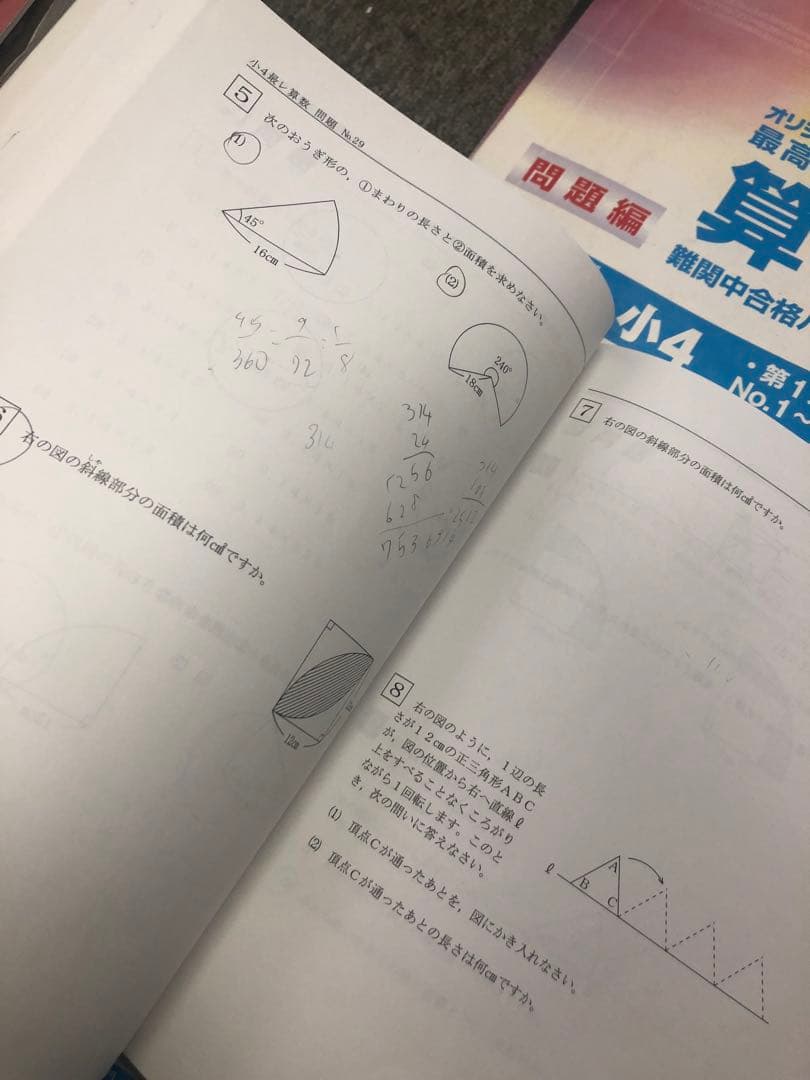 小4最レ算数 問題 No.29
5
次のおうぎ形の，①まわりの長さと②面積を求めなさい。
(1)
45°
16cm
(2)
240°
18cm
45 9 1
360 72 8
314
314
24
1256
628
7536
右の図の斜線部分の面積は何cm²ですか。
しゃ
12cm
7
右の図の斜線部分の面積は何cm²ですか。
8
右の図のように，1辺の長
さが12cmの正三角形ABC
が，図の位置から右へ直線ℓ
上をすべることなくころがり
ながら1回転します。このと
き，次の問いに答えなさい。
(1) 頂点Cが通ったあとを，図にかき入れなさい。
(2) 頂点Cが通ったあとの長さは何cmですか。
ℓ
A
B
C
問題編
オリジ
最高
算
難関中合格
小4
・第1
No.1～